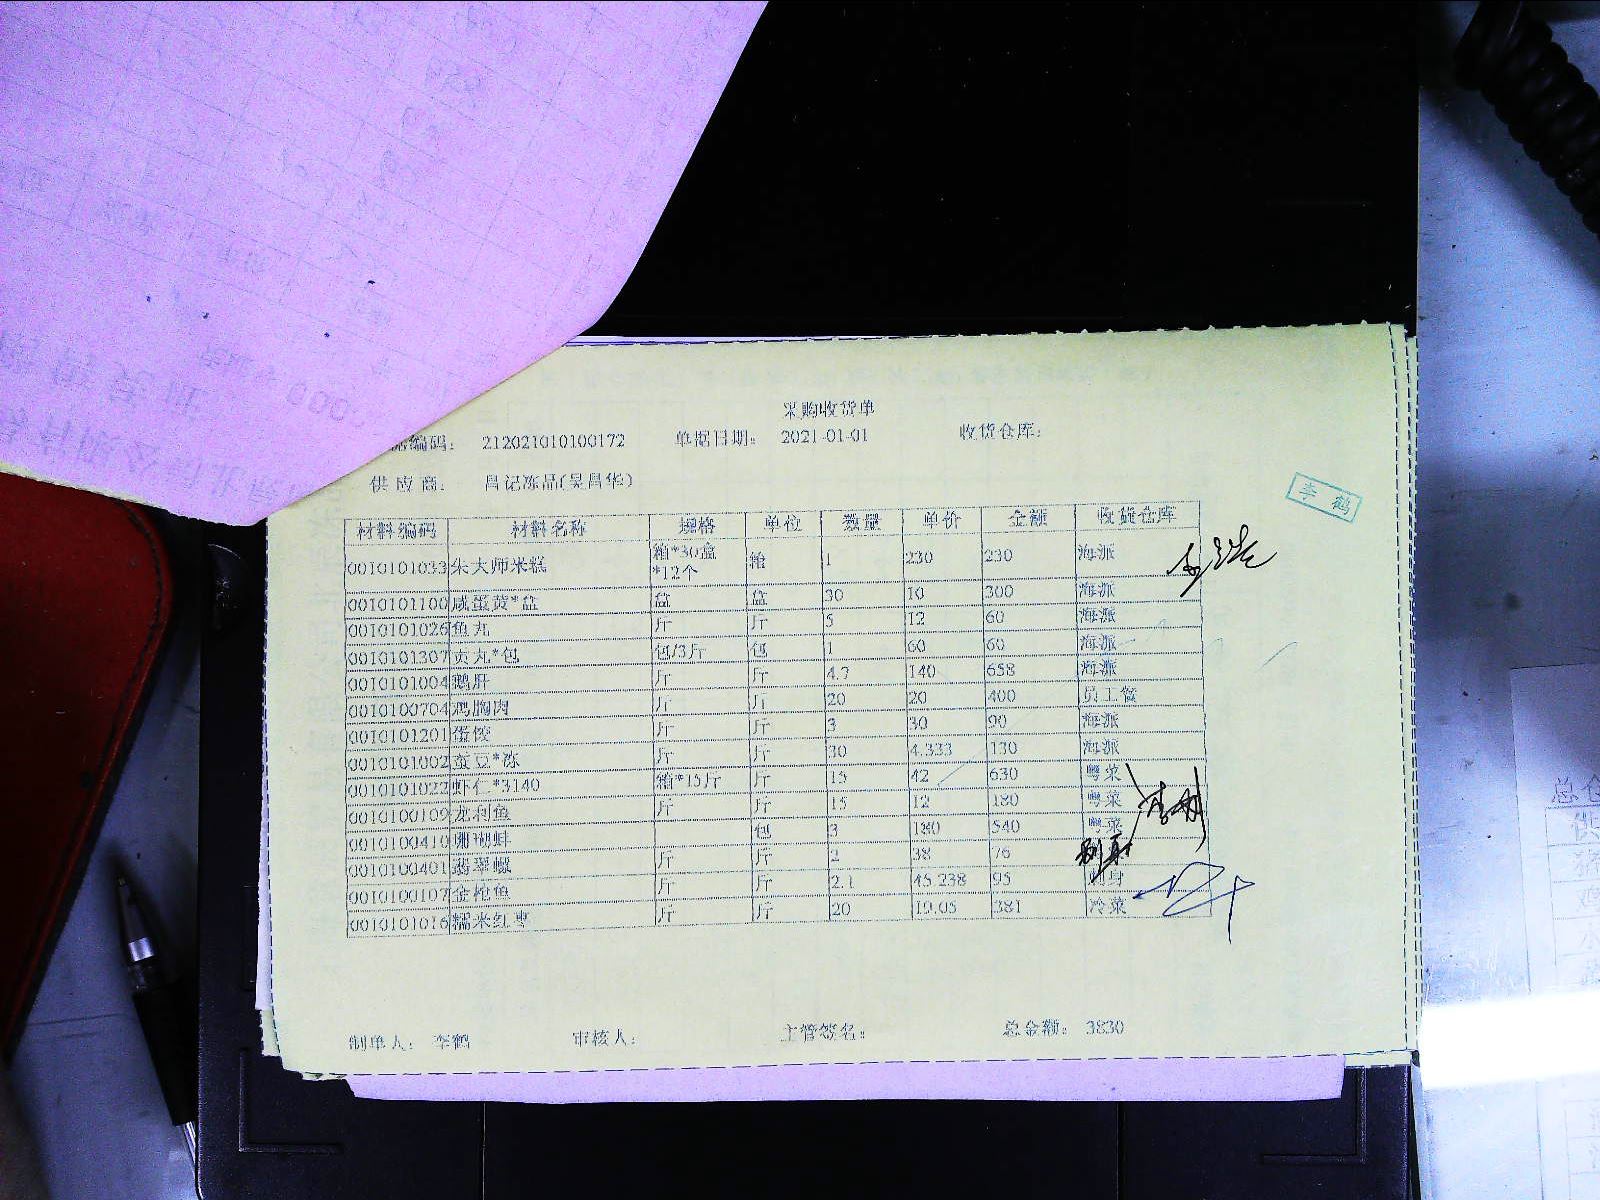 采购收货单
据编码： 212021010100172 单据日期： 2021-01-01 收货仓库：
供应商： 昌记冻品(吴昌华)
李鹤
材料编码 材料名称 规格 单位 数量 单价 金额 收货仓库
0010101033 朱大师米糕 箱*30盒*12个 箱 1 230 230 海派
0010101100 咸蛋黄*盒 盒 盒 30 10 300 海派
0010101026 鱼丸 斤 斤 5 12 60 海派
0010101307 贡丸*包 包/3斤 包 1 60 60 海派
0010101004 鹅肝 斤 斤 4.7 140 658 海派
0010100704 鸡胸肉 斤 斤 20 20 400 员工餐
0010101201 蛋饺 斤 斤 3 30 90 海派
0010101002 蚕豆*冻 斤 斤 30 4.333 130 海派
0010101022 虾仁*3140 箱*15斤 斤 15 42 630 粤菜
0010100109 龙利鱼 斤 斤 15 12 180 粤菜
0010100410 珊瑚蚌 包 3 180 540 粤菜
0010100401 翡翠螺 斤 斤 2 38 76 刺身
0010100107 金枪鱼 斤 斤 2.1 45.238 95 刺身
0010101016 糯米红枣 斤 斤 20 19.05 381 冷菜
制单人： 李鹤 审核人： 主管签名： 总金额： 3830